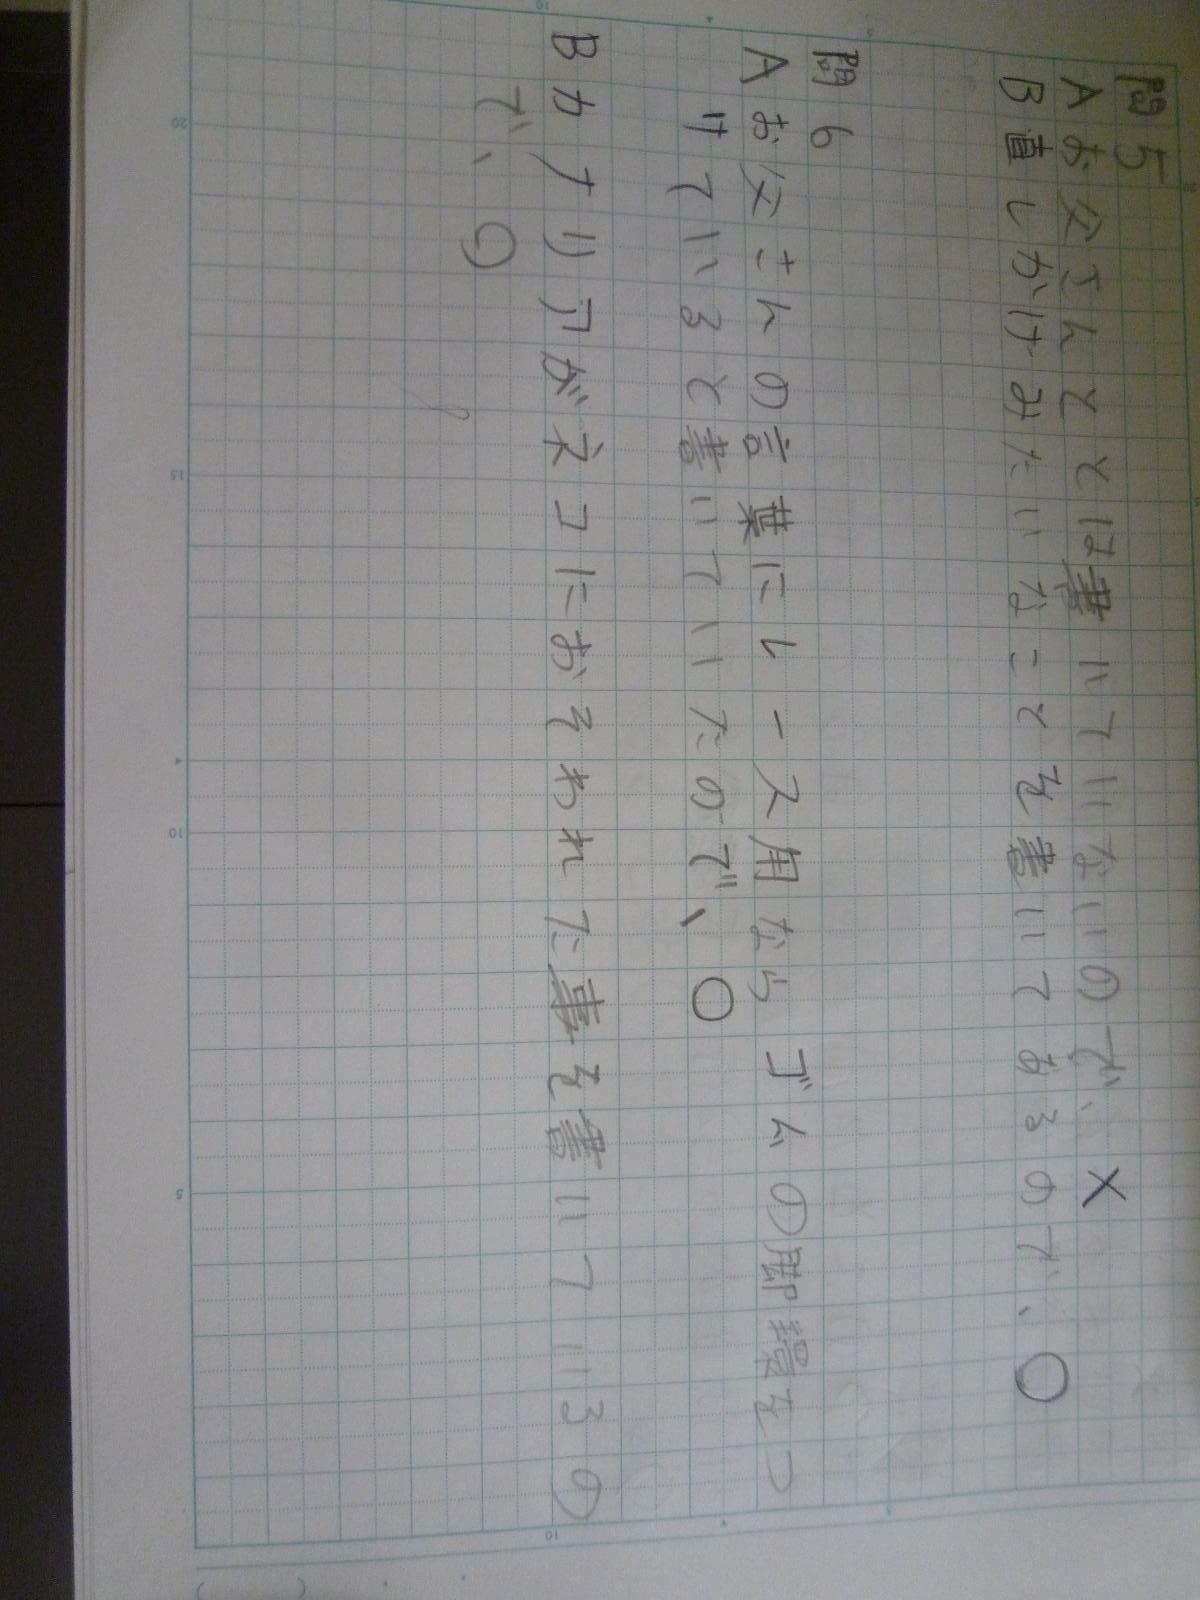 問5
Aお父さんととは書いていないので、×
B直しかけみたいなことを書いてあるので、○
問6
Aお父さんの言葉にレース用ならゴムの脚環をつ
けていると書いていたので、○
Bカナリアがネコにおそわれた事を書いているの
で、○
20
15
10
5
10